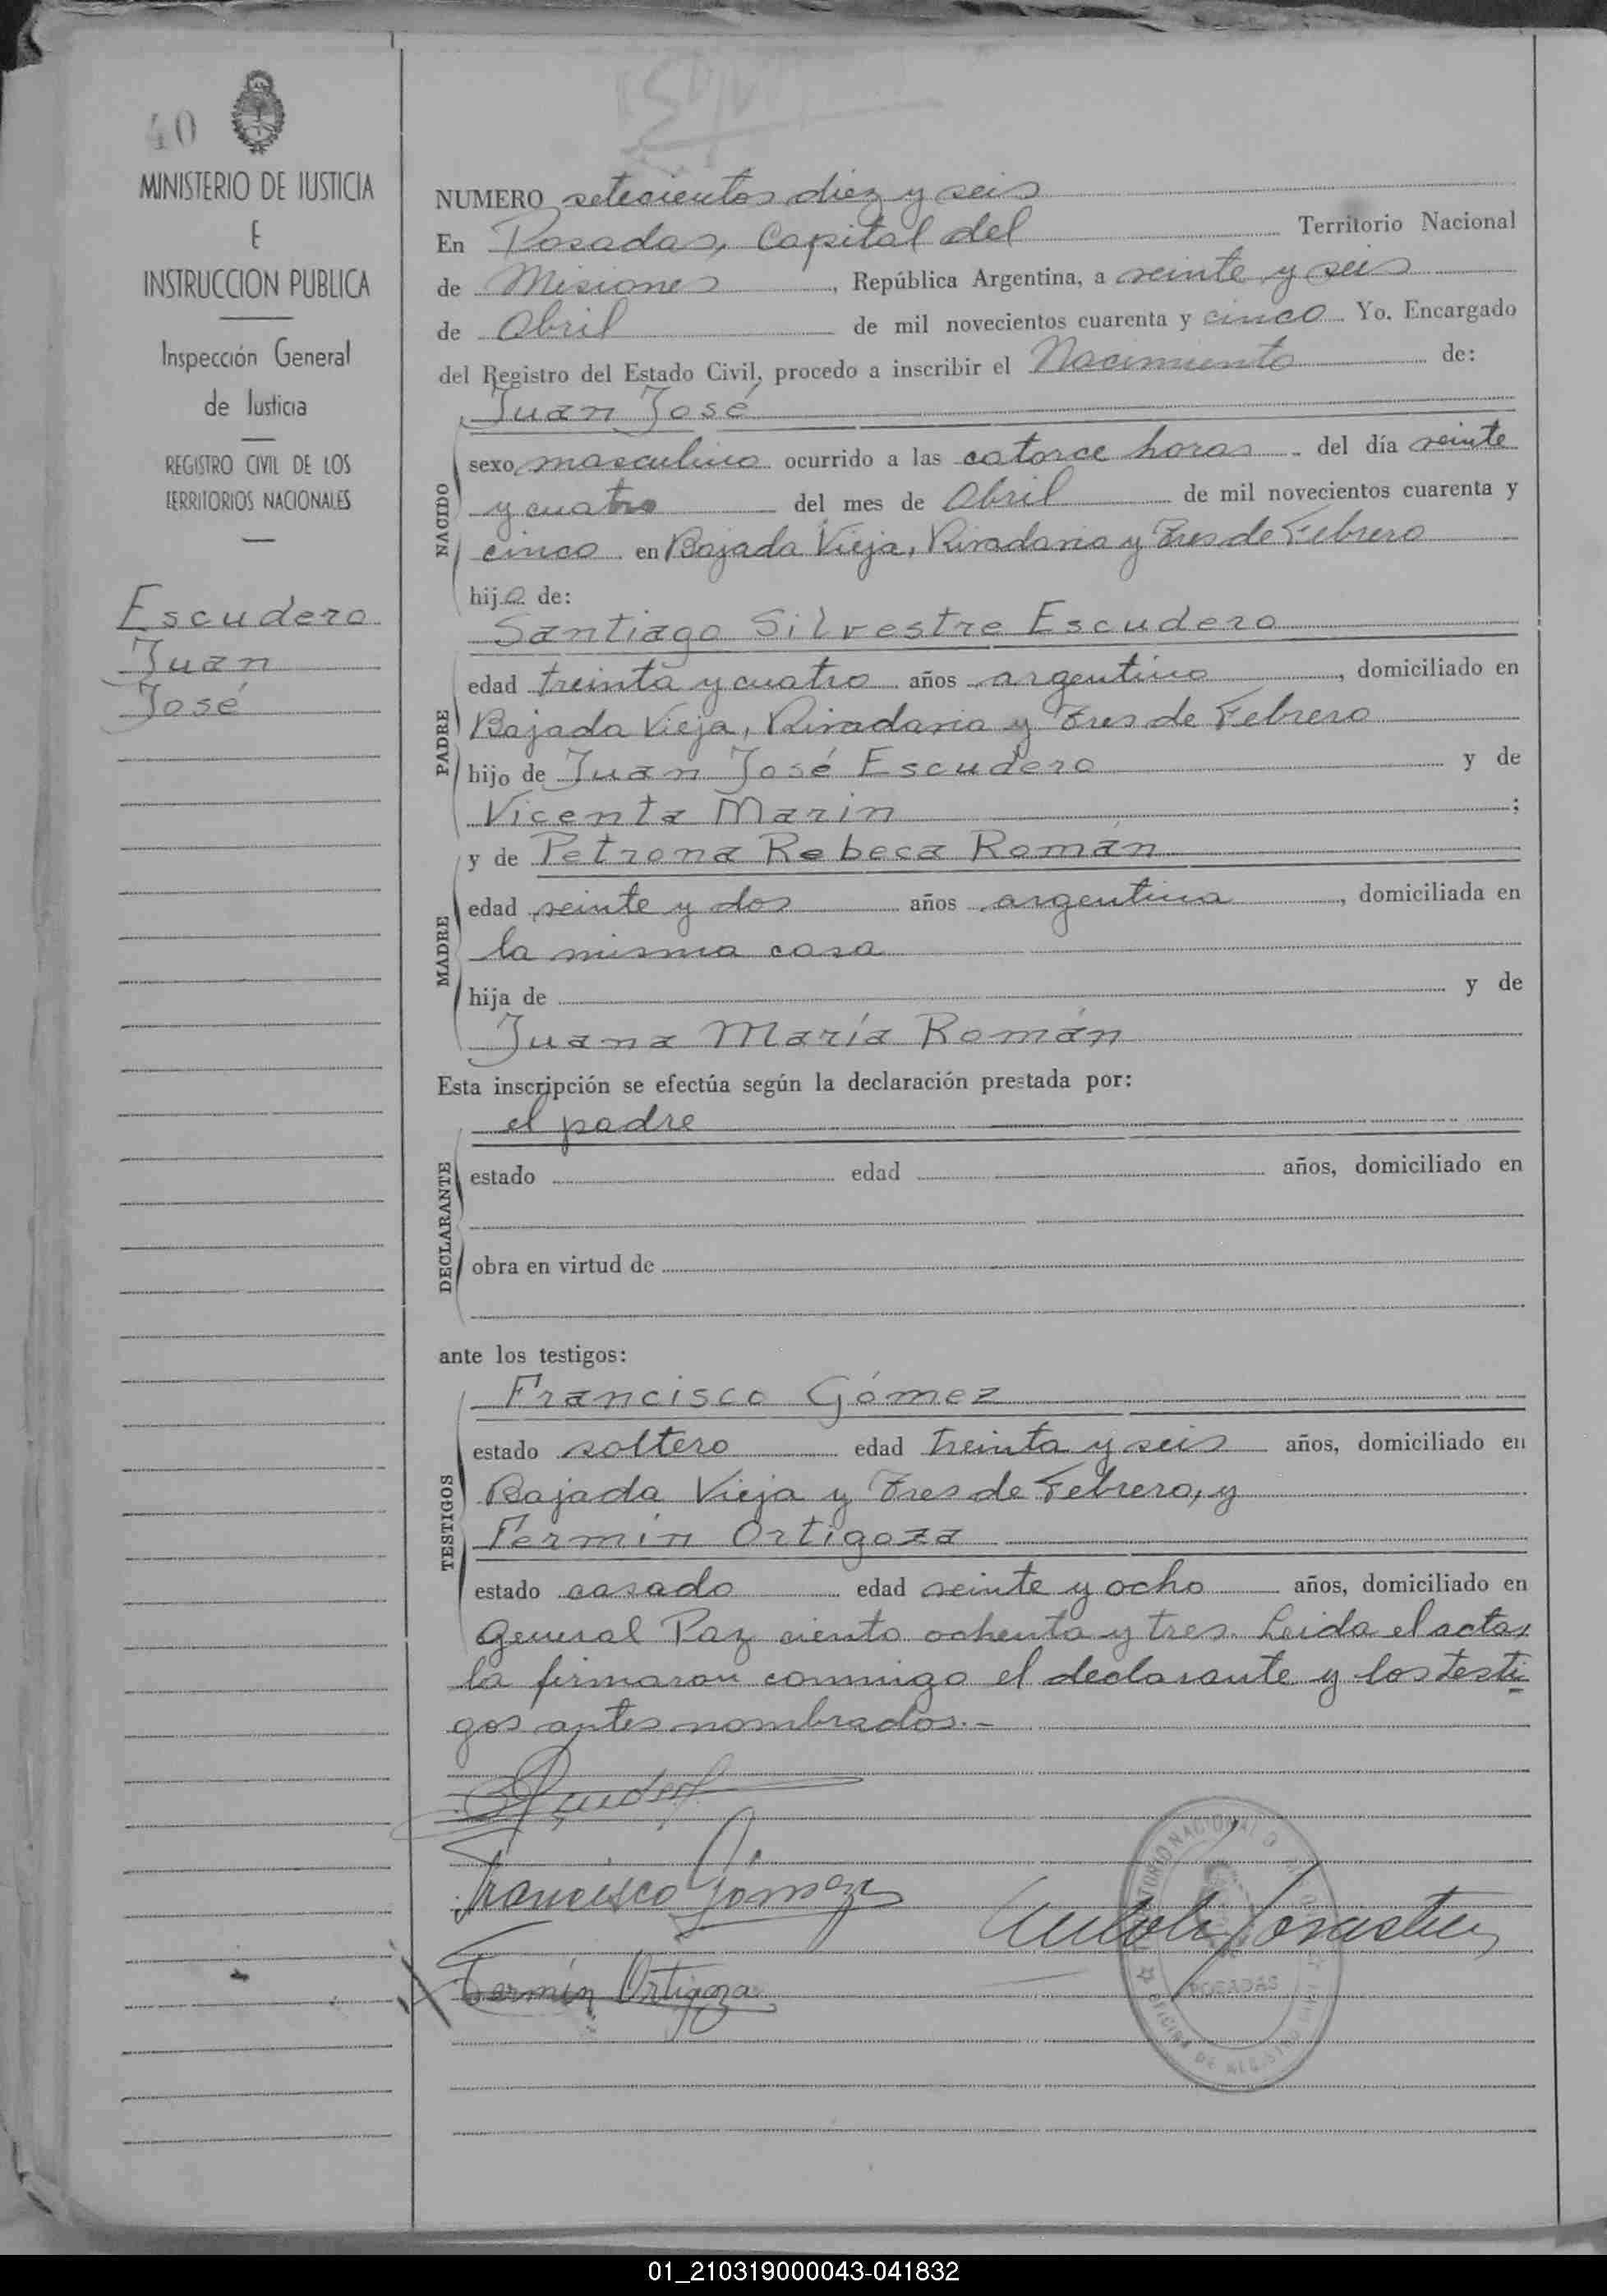 40
MINISTERIO DE JUSTICIA
E
INSTRUCCION PUBLICA
Inspección General
de Justicia
REGISTRO CIVIL DE LOS
TERRITORIOS NACIONALES
Escudero
Juan
José
NUMERO setecientos diez y seis
En Posadas, Capital del Territorio Nacional
de Misiones, República Argentina, a veinte y seis
de Abril de mil novecientos cuarenta y cinco Yo. Encargado
del Registro del Estado Civil, procedo a inscribir el Nacimiento de:
Juan José
NACIDO
sexo masculino ocurrido a las catorce horas del día veinte
y cuatro del mes de Abril de mil novecientos cuarenta y
cinco en Bajada Vieja, Rivadavia y Tres de Febrero
hijo de:
Santiago Silvestre Escudero
PADRE
edad treinta y cuatro años argentino, domiciliado en
Bajada Vieja, Rivadavia y Tres de Febrero
hijo de Juan José Escudero y de
Vicenta Marin;
y de Petrona Rebeca Román
MADRE
edad veinte y dos años argentina, domiciliada en
la misma casa
hija de y de
Juana María Román
Esta inscripción se efectúa según la declaración prestada por:
el padre
DECLARANTE
estado edad años, domiciliado en
obra en virtud de
ante los testigos:
Francisco Gómez
TESTIGOS
estado soltero edad treinta y seis años, domiciliado en
Bajada Vieja y Tres de Febrero, y
Fermín Ortigoza
estado casado edad veinte y ocho años, domiciliado en
General Paz ciento ochenta y tres. Leida el acta,
la firmaron conmigo el declarante y los testi
gos antes nombrados.-
Francisco Gómez
Fermín Ortigoza
POSADAS
01_210319000043-041832